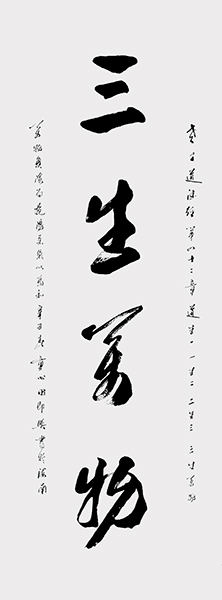 老子道德經第四十二章 道生一 一生二 二生三 三生萬物
三生萬物
萬物負陰而抱陽沖氣以為和 辛丑 童心 即興書於海南